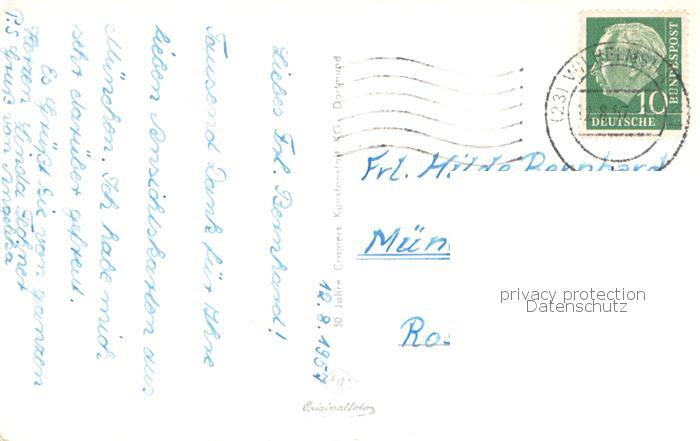 12.8.1957
Liebes Frl. Bernhard!
Tausend Dank für Ihre
lieben Ansichtskarten aus
München. Ich habe mich
sehr darüber gefreut.
Es grüßt Sie vom ganzen
Herzen Linda
P.S Gruß von Angelika
50 Jahre Cramers Kunstanstalt KG. Dortmund
Originalfoto
(23) WILHELMSH
.8.57
10
DEUTSCHE
BUNDESPOST
Frl. Hilde Bernhard
Mün
Ros
privacy protection
Datenschutz